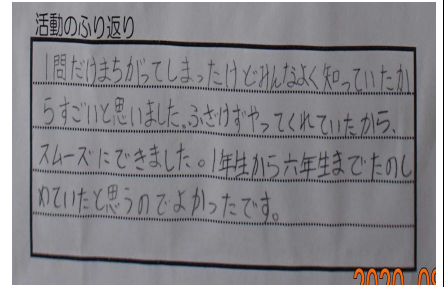 活動のふり返り
1問だけまちがってしまったけどみんなよく知っていたか
らすごいと思いました。ふざけずやってくれていたから、
スムーズにできました。1年生から六年生までたのし
めていたと思うのでよかったです。